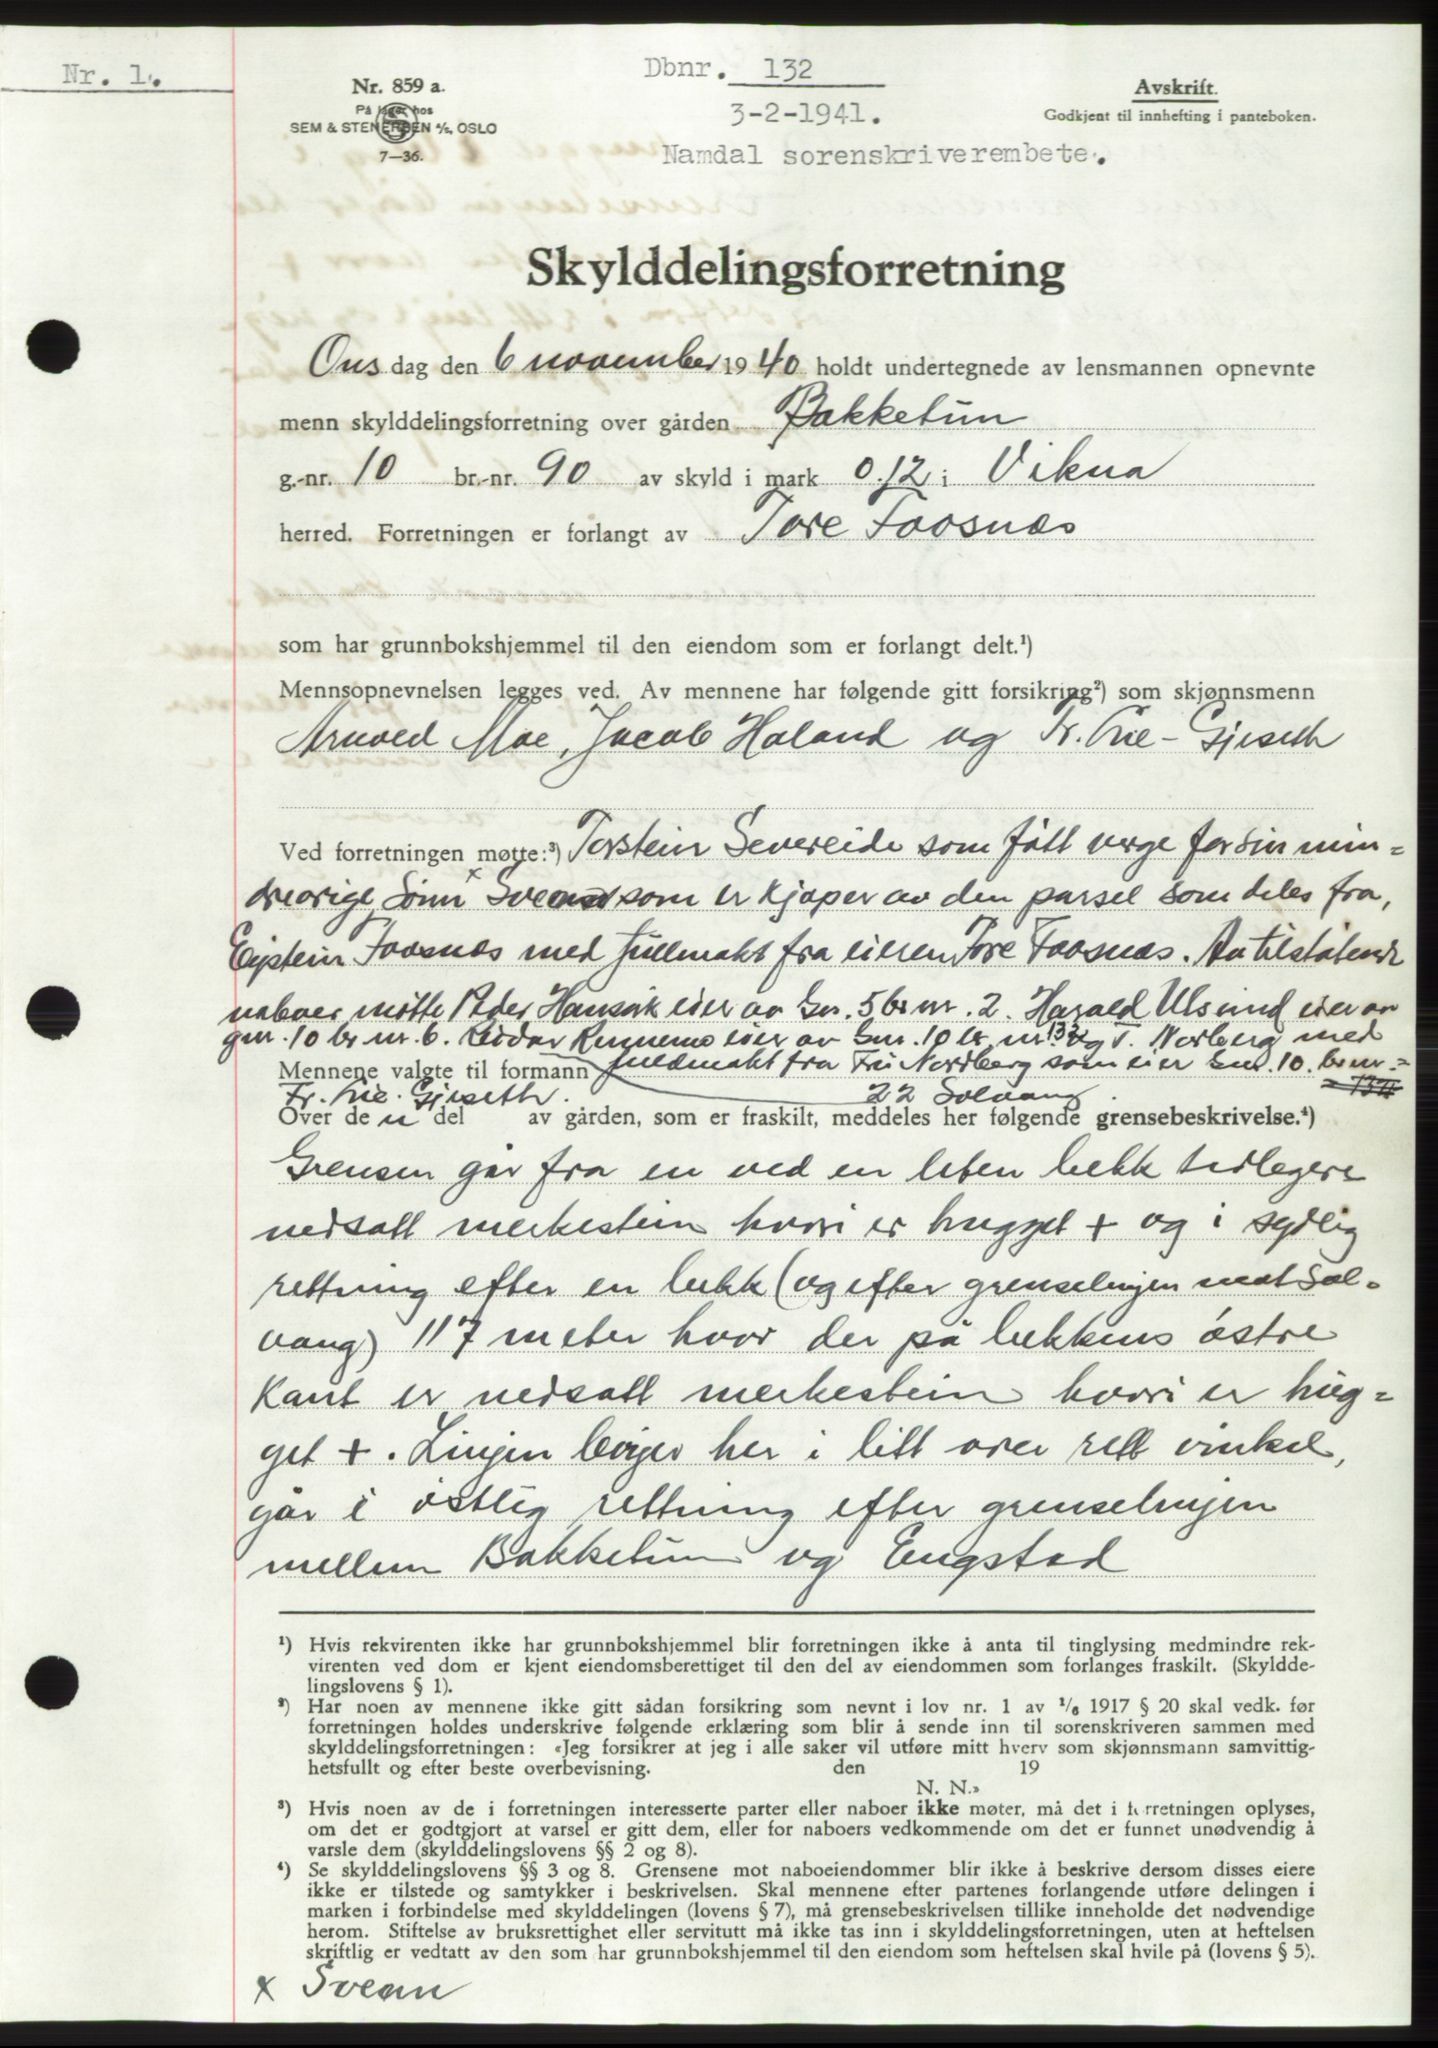 Nr. 1.
Nr. 859 a.
På lager hos
SEM & STENERSEN A/S, OSLO
7—36.
Dbnr. 132
3-2-1941.
Namdal sorenskriverembete.
Avskrift.
Godkjent til innhefting i panteboken.
Skylddelingsforretning
Ons dag den 6 november 1940 holdt undertegnede av lensmannen opnevnte
menn skylddelingsforretning over gården Bakketun
g.-nr. 10 br.-nr. 90 av skyld i mark 0.12 i Vikna
herred. Forretningen er forlangt av Tore Foosnæs
som har grunnbokshjemmel til den eiendom som er forlangt delt.¹)
Mennsopnevnelsen legges ved. Av mennene har følgende gitt forsikring²) som skjønnsmenn
Arnold Moe, Jacob Haland og Fr. Lie-Gjeseth
Ved forretningen møtte:³) Torstein Severeide som fått verge for sin min=
dreårige Sønn x som er kjøper av den parsel som deles fra,
Eystein Foosnæs med fullmakt fra eieren Tore Foosnæs. Av tilstøtende
naboer møtte Peder Hansvik eier av Gn. 5 br nr. 2. Harald Ulsund eier av
gnr. 10 br. nr. 6. Reidar eier av Gnr. 10 br. nr. 132 og T. Norberg med
Mennene valgte til formann fullmakt fra Fru Nordberg som eier Gnr. 10. br nr.=
Fr. Lie-Gjeseth. 22 Solvang.
Over de n del av gården, som er fraskilt, meddeles her følgende grensebeskrivelse.⁴)
Grensen går fra en ved en liten bekk tidligere
nedsatt merkestein hvori er hugget + og i sydlig
rettning efter en bekk (og efter grenselinjen mot Sol=
vang) 117 meter hvor der på bekkens østre
kant er nedsatt merkestein hvori er hug=
get +. Linjen bøier her i litt over rett vinkel,
går i østlig rettning efter grenselinjen
mellem Bakketun og Engstad
¹) Hvis rekvirenten ikke har grunnbokshjemmel blir forretningen ikke å anta til tinglysing medmindre rek-
virenten ved dom er kjent eiendomsberettiget til den del av eiendommen som forlanges fraskilt. (Skyldde-
lingslovens § 1).
²) Har noen av mennene ikke gitt sådan forsikring som nevnt i lov nr. 1 av ¹/₆ 1917 § 20 skal vedk. før
forretningen holdes underskrive følgende erklæring som blir å sende inn til sorenskriveren sammen med
skylddelingsforretningen: «Jeg forsikrer at jeg i alle saker vil utføre mitt hverv som skjønnsmann samvittig-
hetsfullt og efter beste overbevisning. den 19
N. N.»
³) Hvis noen av de i forretningen interesserte parter eller naboer ikke møter, må det i forretningen oplyses,
om det er godtgjort at varsel er gitt dem, eller for naboers vedkommende om det er funnet unødvendig å
varsle dem (skylddelingslovens §§ 2 og 8).
⁴) Se skylddelingslovens §§ 3 og 8. Grensene mot naboeiendommer blir ikke å beskrive dersom disses eiere
ikke er tilstede og samtykker i beskrivelsen. Skal mennene efter partenes forlangende utføre delingen i
marken i forbindelse med skylddelingen (lovens § 7), må grensebeskrivelsen tillike inneholde det nødvendige
herom. Stiftelse av bruksrettighet eller servitutt må ikke tas inn i skylddelingsforretningen, uten at heftelsen
skriftlig er vedtatt av den som har grunnbokshjemmel til den eiendom som heftelsen skal hvile på (lovens § 5).
x Svean